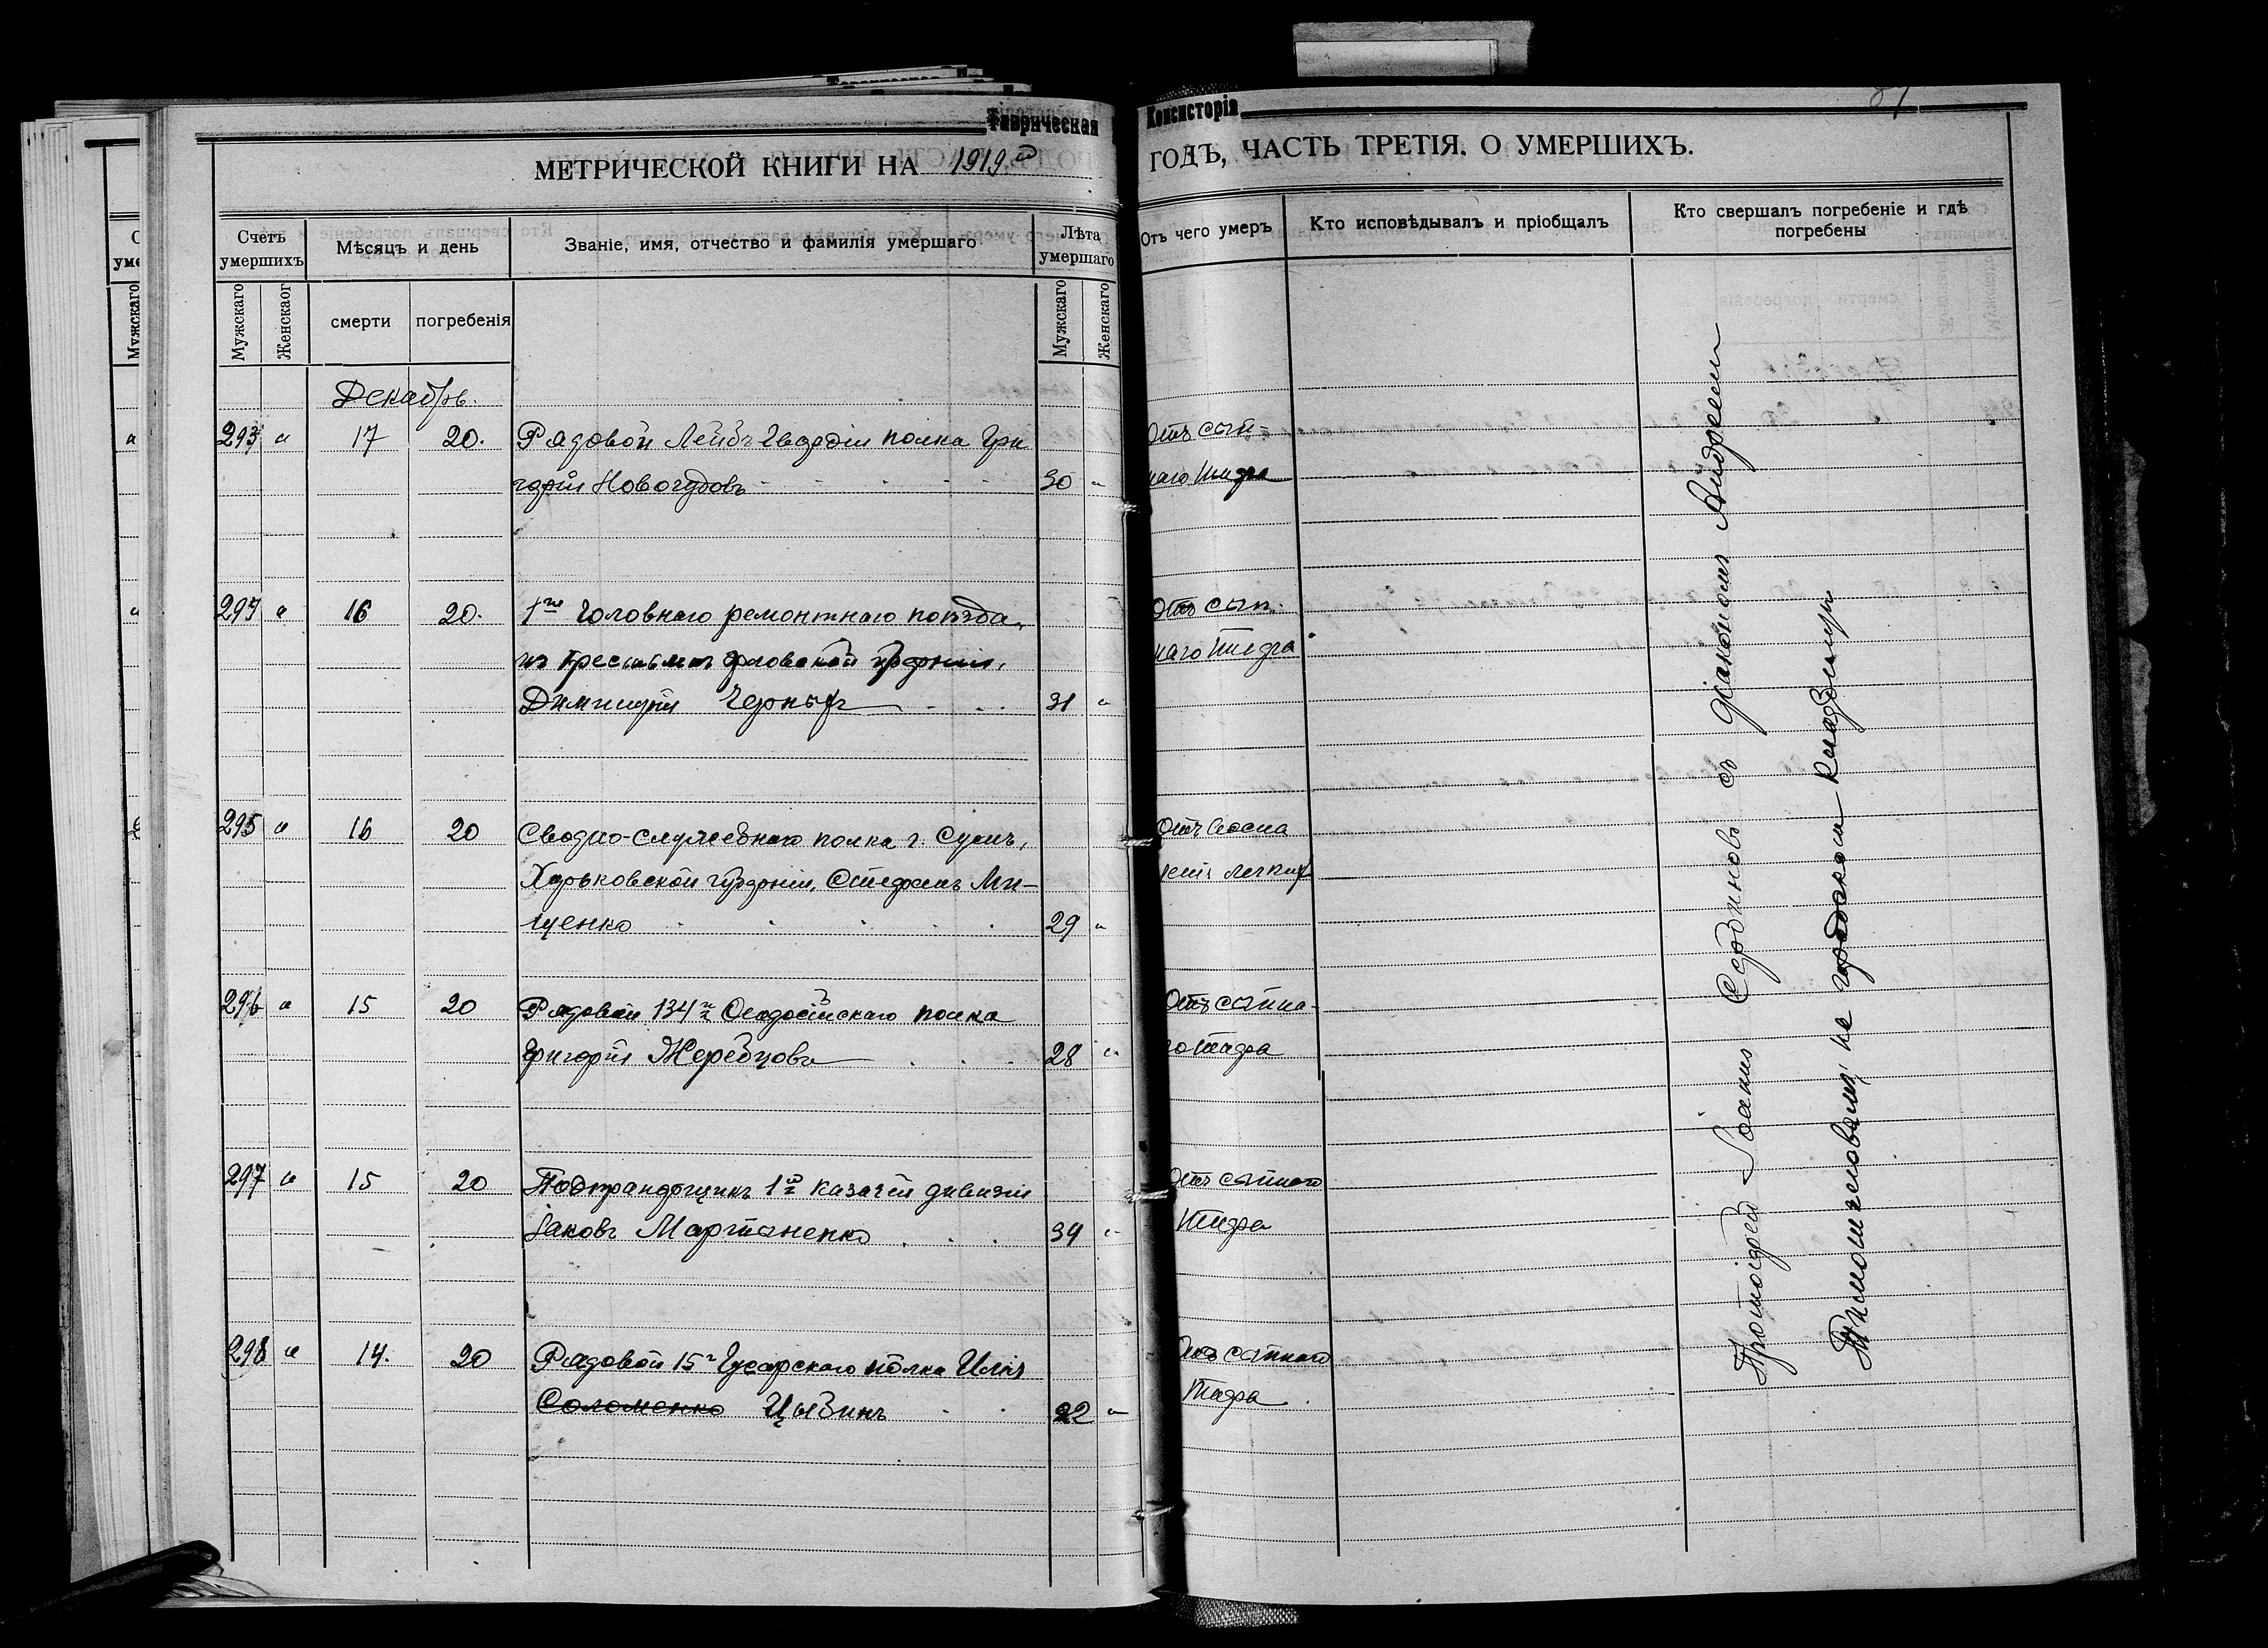 Таврическая Консисторія
МЕТРИЧЕСКОЙ КНИГИ НА 1919й ГОДЪ, ЧАСТЬ ТРЕТІЯ. О УМЕРШИХЪ.
Счетъ умершихъ
Мѣсяцъ и день
Званіе, имя, отчество и фамилія умершаго
Лѣта умершаго
Отъ чего умеръ
Кто исповѣдывалъ и пріобщалъ
Кто свершалъ погребеніе и гдѣ погребены
Мужскаго Женскаог смерти погребенія Мужскаго Женскаго
Декабрь.
293 " 17 20. Рядовой Лейбъ Гвардіи полка Гри
горій Новогудовъ 30 "
Отъ сып-
наго тифа
"
16 20. 1го Головнаго ремонтнаго поѣзда,
изъ крестьянъ Орловской губерніи,
Димитрій Черныхъ 31 "
Отъ сып.
наго тифа
295 " 16 20 Сводно-служебнаго полка г. Сумъ,
Харьковской губерніи, Стефанъ Ми-
щенко 29 "
Отъ воспа
ленія легкихъ
296 " 15 20 Рядовой 134го Ѳеодосійскаго полка
Григорій Жеребцовъ 28 "
Отъ сыпна-
го тифа
297 " 15 20 Подпрапорщикъ 1й казачей дивизіи
Іаковъ Мартыненко 34 "
Отъ сыпного
тифа
298 " 14. 20 Рядовой 15го Гусарскаго полка Илія
Соломенко Цыбинъ 22 "
Отъ сыпного
тифа
Протоіерей Іоаннъ Сербиновъ съ діакономъ Андреемъ
на городскомъ кладбищѣ